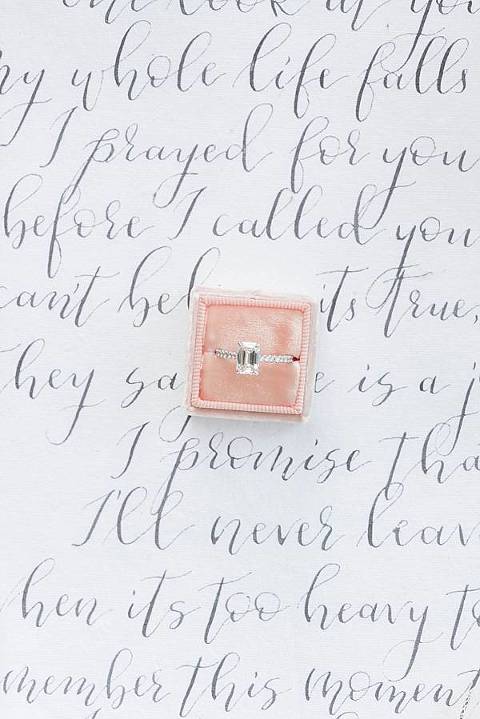 one look at you
my whole life falls
I prayed for you
before I called you
can't bel its true,
they sa e is a j
I promise tha
I'll never leav
hen its too heavy to
member this moment